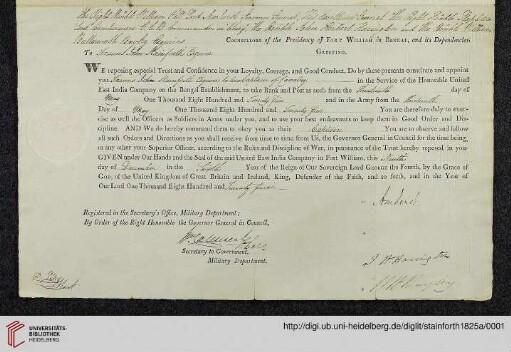 The Right Honble William Pitt Lord Amherst Governor General, His Excellency General The Right Honble
and Commander in Chief, the Honble John Herbert Harington and the Honble William
Butterworth Bayley Esquires COUNSELLORS of the Presidency of FORT WILLIAM in BENGAL, and its Dependencies.
To Francis John Stainforth Esquire GREETING.
WE reposing especial Trust and Confidence in your Loyalty, Courage, and Good Conduct, Do by these presents constitute and appoint
you Francis John Stainforth Esquire to be of Cavalry in the Service of the Honorable United
East India Company on the Bengal Establishment, to take Rank and Post as such from the day of
May One Thousand Eight Hundred and Twenty five and in the Army from the
Day of May One Thousand Eight Hundred and Twenty five You are therefore duly to exer-
cise as well the Officers as Soldiers in Arms under you, and to use your best endeavours to keep them in Good Order and Dis-
cipline. AND We do hereby command them to obey you as their You are to observe and follow
all such Orders and Directions as you shall receive from time to time from Us, the Governor General in Council for the time being,
or any other your Superior Officer, according to the Rules and Discipline of War, in pursuance of the Trust hereby reposed in you
GIVEN under Our Hands and the Seal of the said United East India Company in Fort William, this Ninth
day of December in the Sixth Year of the Reign of Our Sovereign Lord George the Fourth, by the Grace of
God, of the United Kingdom of Great Britain and Ireland, King, Defender of the Faith, and so forth, and in the Year of
Our Lord One Thousand Eight Hundred and Twenty five
Amherst
Registered in the Secretary's Office, Military Department:
By Order of the Right Honorable the Governor General in Council,
Secretary to Government,
Military Department.
J. H. Harington
W B Bayley
UNIVERSITÄTS-
BIBLIOTHEK
HEIDELBERG
http://digi.ub.uni-heidelberg.de/diglit/stainforth1825a/0001